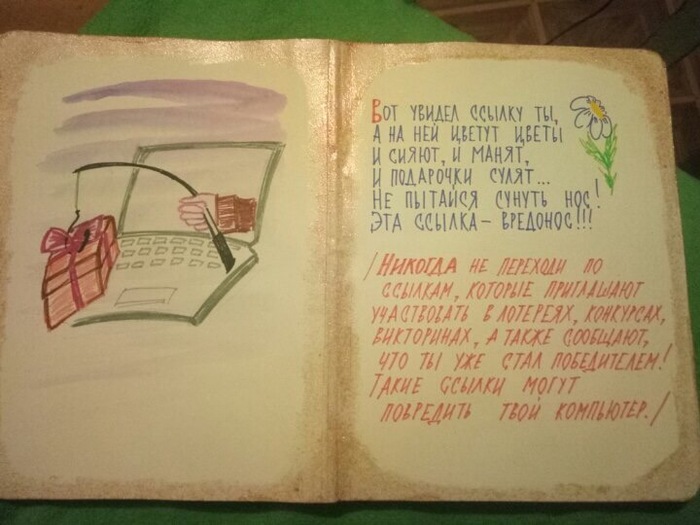 Вот увидел ссылку ты,
а на ней цветут цветы
и сияют, и манят,
и подарочки сулят...
Не пытайся сунуть нос!
Эта ссылка – вредонос!!!
/Никогда не переходи по
ссылкам, которые приглашают
участвовать в лотереях, конкурсах,
викторинах, а также сообщают,
что ты уже стал победителем!
Такие ссылки могут
повредить твой компьютер./